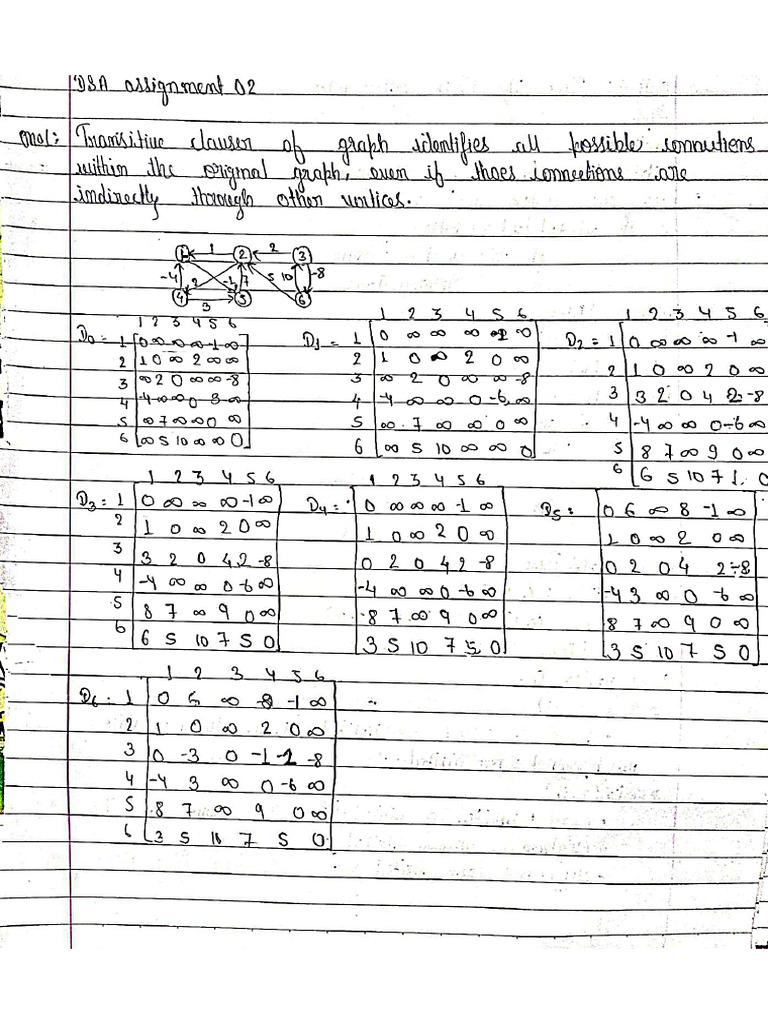 DSA assignment 02
Transitive clauser of graph identifies all possible connections
within the original graph, even if thoes connections are
indirectly through other vertices.
1 1 2 2 3
-4 2 -1 7 5 10 -8
4 3 5 6
1 2 3 4 5 6
D0 = 1 0 ∞ ∞ ∞ -1 ∞
2 1 0 ∞ 2 ∞ ∞
3 ∞ 2 0 ∞ ∞ -8
4 -4 ∞ ∞ 0 3 ∞
5 ∞ 7 ∞ ∞ 0 ∞
6 ∞ 5 10 ∞ ∞ 0
1 2 3 4 5 6
D1 = 1 0 ∞ ∞ ∞ ∞
2 1 0 ∞ 2 0 ∞
3 ∞ 2 0 ∞ ∞ -8
4 -4 ∞ ∞ 0 -6 ∞
5 ∞ 7 ∞ ∞ 0 ∞
6 ∞ 5 10 ∞ ∞ 0
1 2 3 4 5 6
D2 = 1 0 ∞ ∞ ∞ -1 ∞
2 1 0 ∞ 2 0 ∞
3 3 2 0 4 2 -8
4 -4 ∞ ∞ 0 -6 ∞
5 8 7 ∞ 9 0 ∞
6 6 5 10 7 0
1 2 3 4 5 6
D3 = 1 0 ∞ ∞ ∞ -1 ∞
2 1 0 ∞ 2 0 ∞
3 3 2 0 4 2 -8
4 -4 ∞ ∞ 0 -6 ∞
5 8 7 ∞ 9 0 ∞
6 6 5 10 7 5 0
1 2 3 4 5 6
D4 = 0 ∞ ∞ ∞ -1 ∞
1 0 ∞ 2 0 ∞
0 2 0 4 2 -8
-4 ∞ ∞ 0 -6 ∞
8 7 ∞ 9 0 ∞
3 5 10 7 5 0
D5 = 0 6 ∞ 8 -1 ∞
1 0 ∞ 2 0 ∞
0 2 0 4 2 -8
-4 3 ∞ 0 -6 ∞
8 7 ∞ 9 0 ∞
3 5 10 7 5 0
1 2 3 4 5 6
D6 = 1 0 6 ∞ 8 -1 ∞
2 1 0 ∞ 2 0 ∞
3 0 -3 0 -1 -8
4 -4 3 ∞ 0 -6 ∞
5 8 7 ∞ 9 0 ∞
6 3 5 10 7 5 0